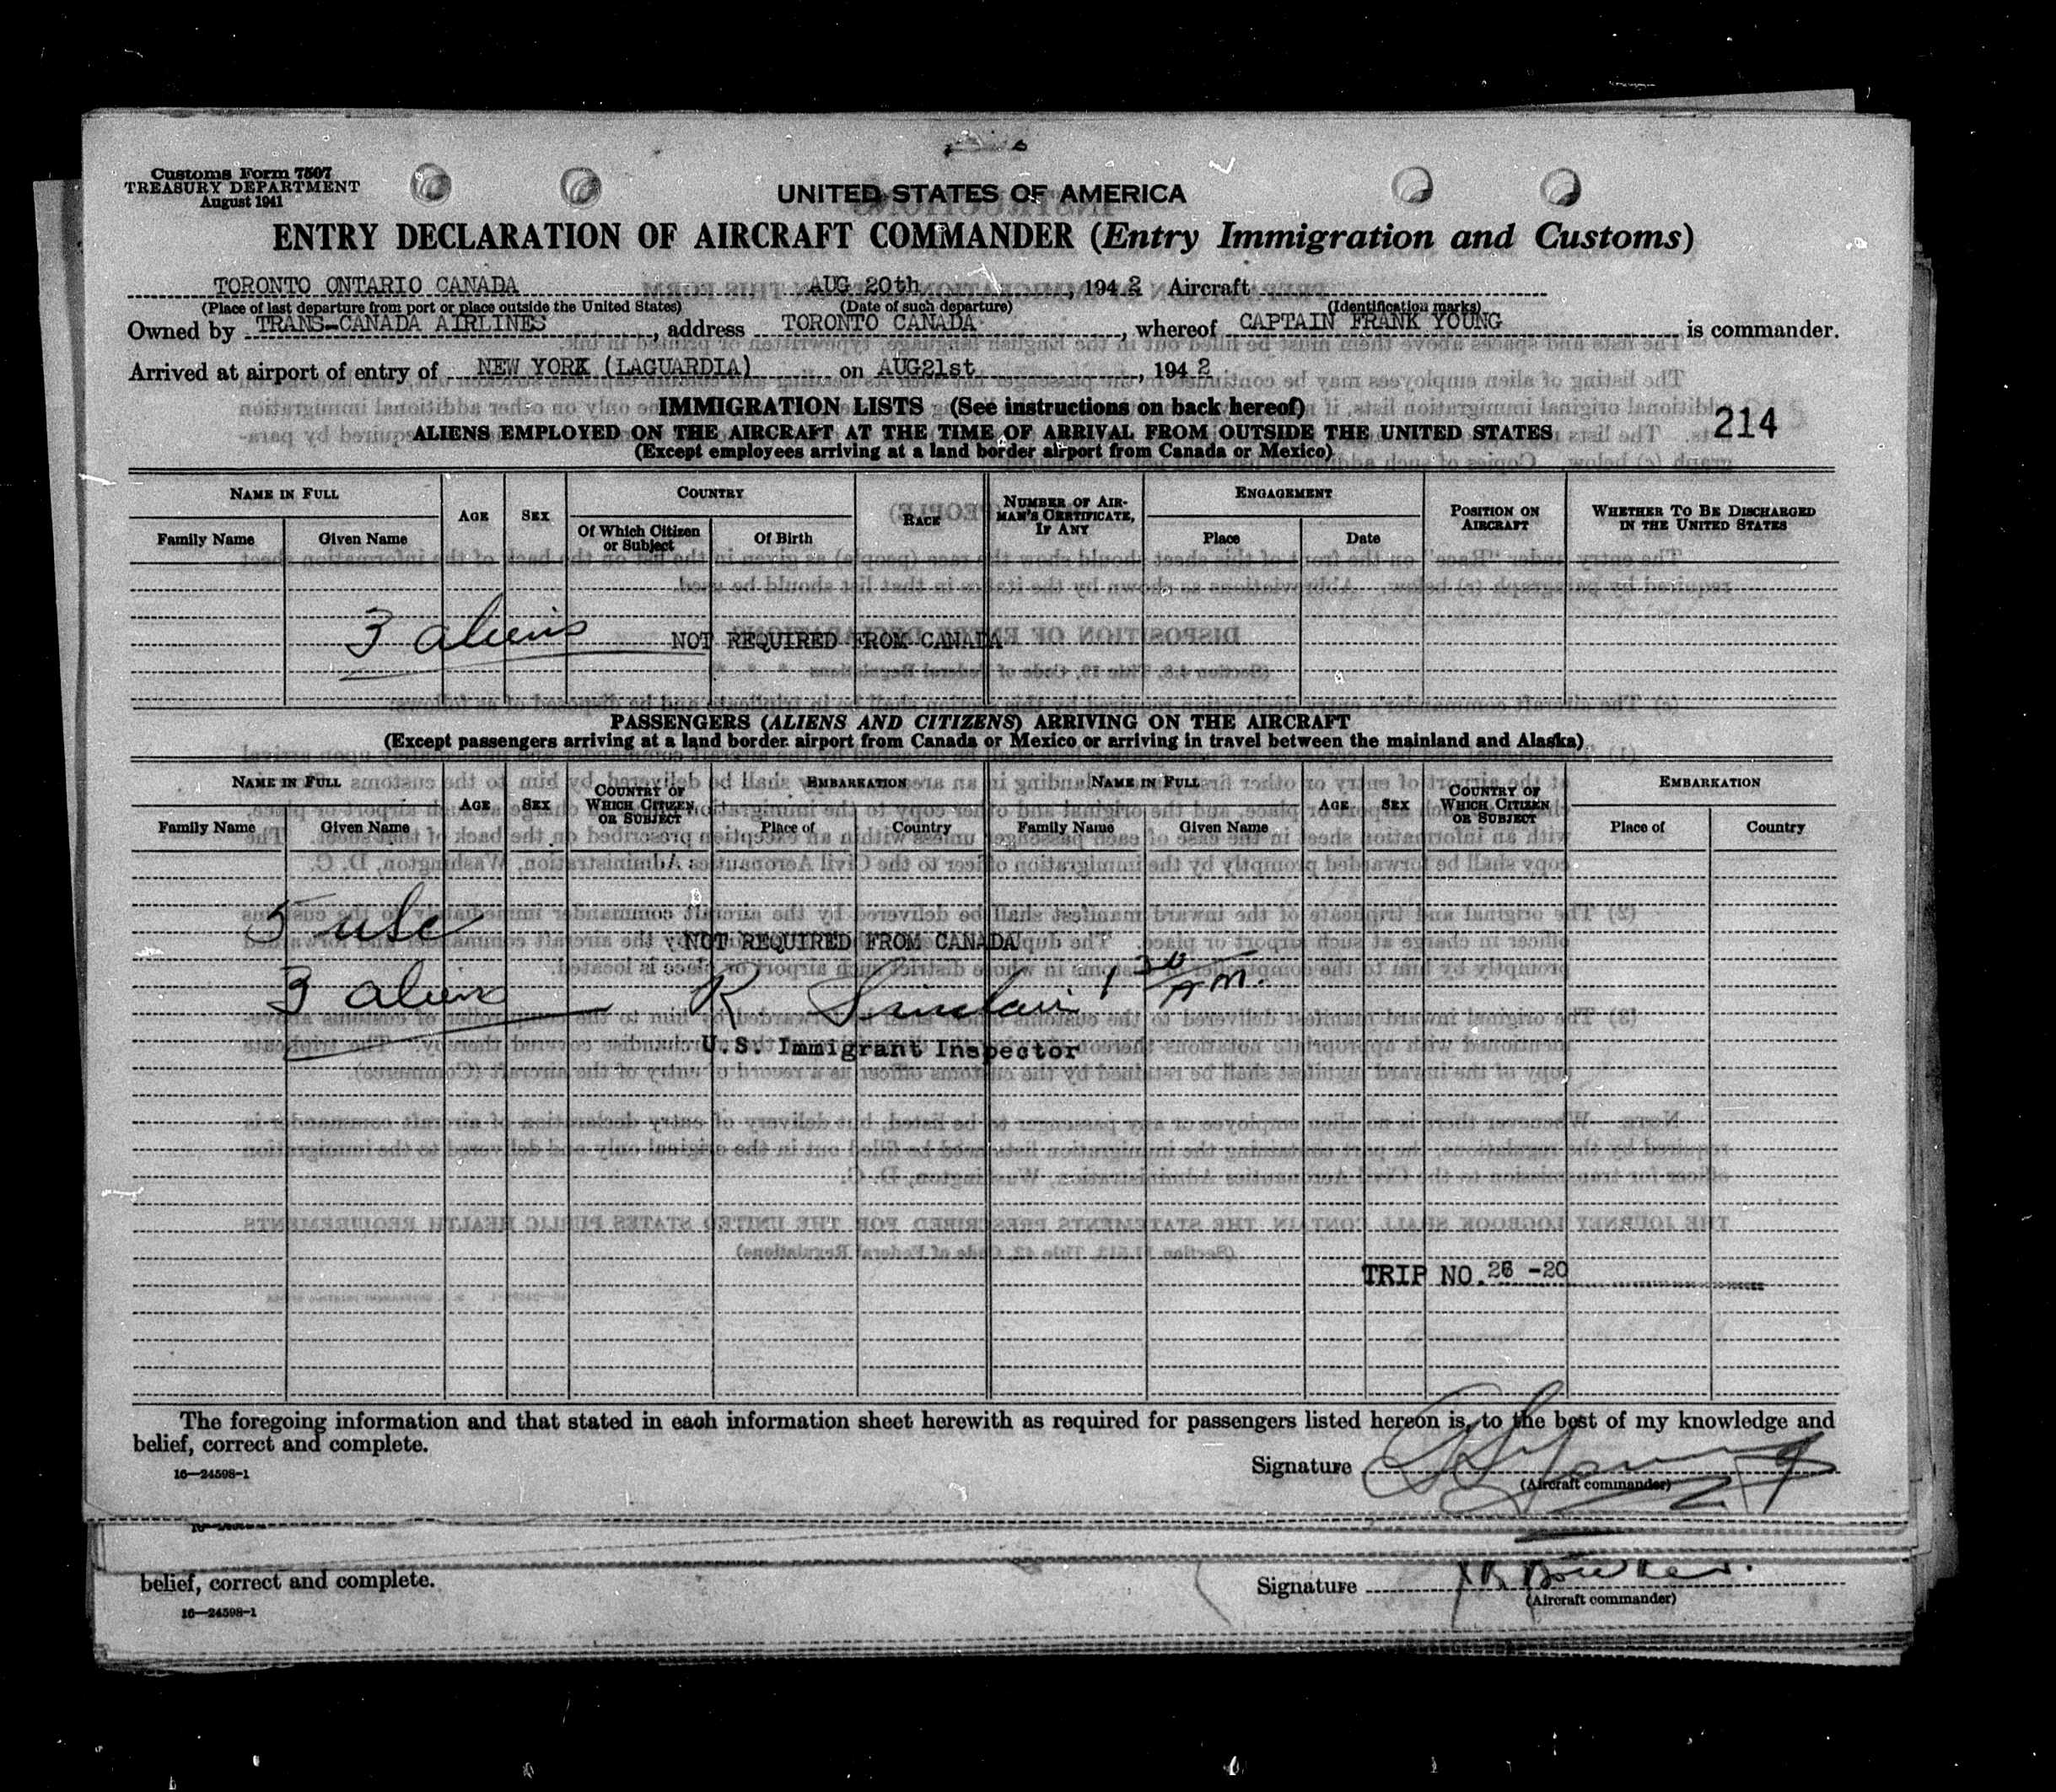 Customs Form 7507
TREASURY DEPARTMENT
August 1941
UNITED STATES OF AMERICA
ENTRY DECLARATION OF AIRCRAFT COMMANDER (Entry Immigration and Customs)
TORONTO ONTARIO CANADA AUG 20th, 1942 Aircraft
(Place of last departure from port or place outside the United States) (Date of such departure) (Identification marks)
Owned by TRANS-CANADA AIRLINES, address TORONTO CANADA, whereof CAPTAIN FRANK YOUNG is commander.
Arrived at airport of entry of NEW YORK (LAGUARDIA) on AUG21st, 1942
IMMIGRATION LISTS (See instructions on back hereof)
214
ALIENS EMPLOYED ON THE AIRCRAFT AT THE TIME OF ARRIVAL FROM OUTSIDE THE UNITED STATES
(Except employees arriving at a land border airport from Canada or Mexico)
NAME IN FULL AGE SEX COUNTRY RACE NUMBER OF AIRMAN'S CERTIFICATE, IF ANY ENGAGEMENT POSITION ON AIRCRAFT WHETHER TO BE DISCHARGED IN THE UNITED STATES
Family Name Given Name Of Which Citizen or Subject Of Birth Place Date
3 aliens NOT REQUIRED FROM CANADA
PASSENGERS (ALIENS AND CITIZENS) ARRIVING ON THE AIRCRAFT
(Except passengers arriving at a land border airport from Canada or Mexico or arriving in travel between the mainland and Alaska)
NAME IN FULL AGE SEX COUNTRY OF WHICH CITIZEN OR SUBJECT EMBARKATION NAME IN FULL AGE SEX COUNTRY OF WHICH CITIZEN OR SUBJECT EMBARKATION
Family Name Given Name Place of Country Family Name Given Name Place of Country
5 usc NOT REQUIRED FROM CANADA
3 aliens R Sinclair 1 30 AM.
U.S. Immigrant Inspector
TRIP NO. 26 -20
The foregoing information and that stated in each information sheet herewith as required for passengers listed hereon is, to the best of my knowledge and
belief, correct and complete.
Signature
16—24598-1
(Aircraft commander)
belief, correct and complete.
Signature
16—24598-1
(Aircraft commander)